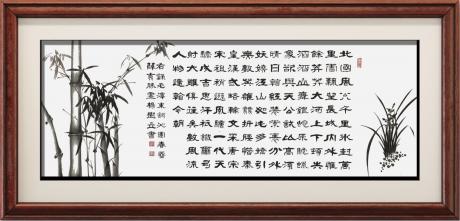 北國風光千里冰封萬
里雪飄望長城内外惟
餘莽莽大河上下頓失
滔滔山舞銀蛇原馳蠟
象欲與天公試比高須
晴日看紅裝素裹分外
妖嬈江山如此多嬌引
無數英雄競折腰惜秦
皇漢武略輸文采唐宗
宋祖稍遜風騷一代天
驕成吉思汗祇識彎弓
射大雕俱往矣數風流
人物還看今朝
右錄毛澤東詞沁園春雪